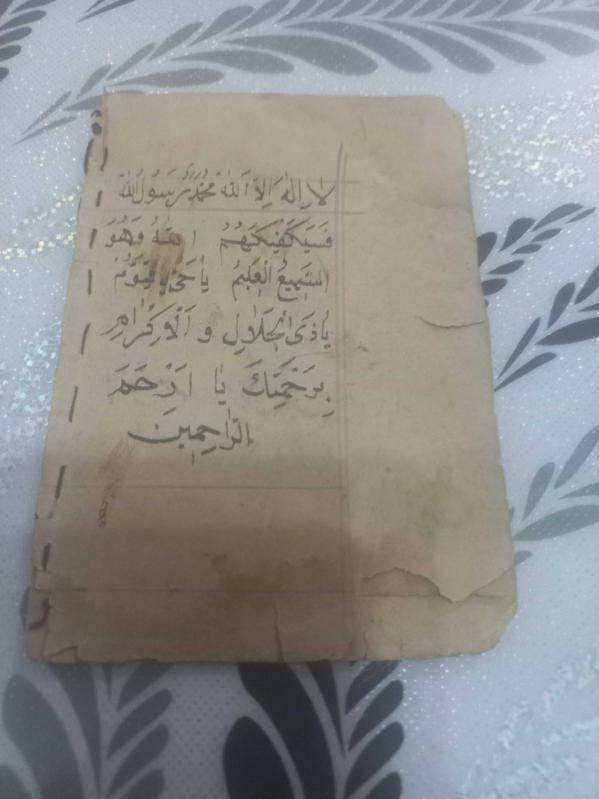 لَا اِلٰهَ اِلَّا اَللّٰهُ مُحَمَّدٌ رَسُولُ اللّٰهْ
فَسَيَكْفِيكَهُمُ اللّٰهُ وَهُوَ
السَّمِيعُ الْعَلِيمُ يَاحَىُّ يَاقَيُّومُ
يَاذَى الْجَلَالِ و َالْاِكْرَامِ
بِرَحْمَتِكَ يَا اَرْحَمَ
الرَّاحِمِينَ